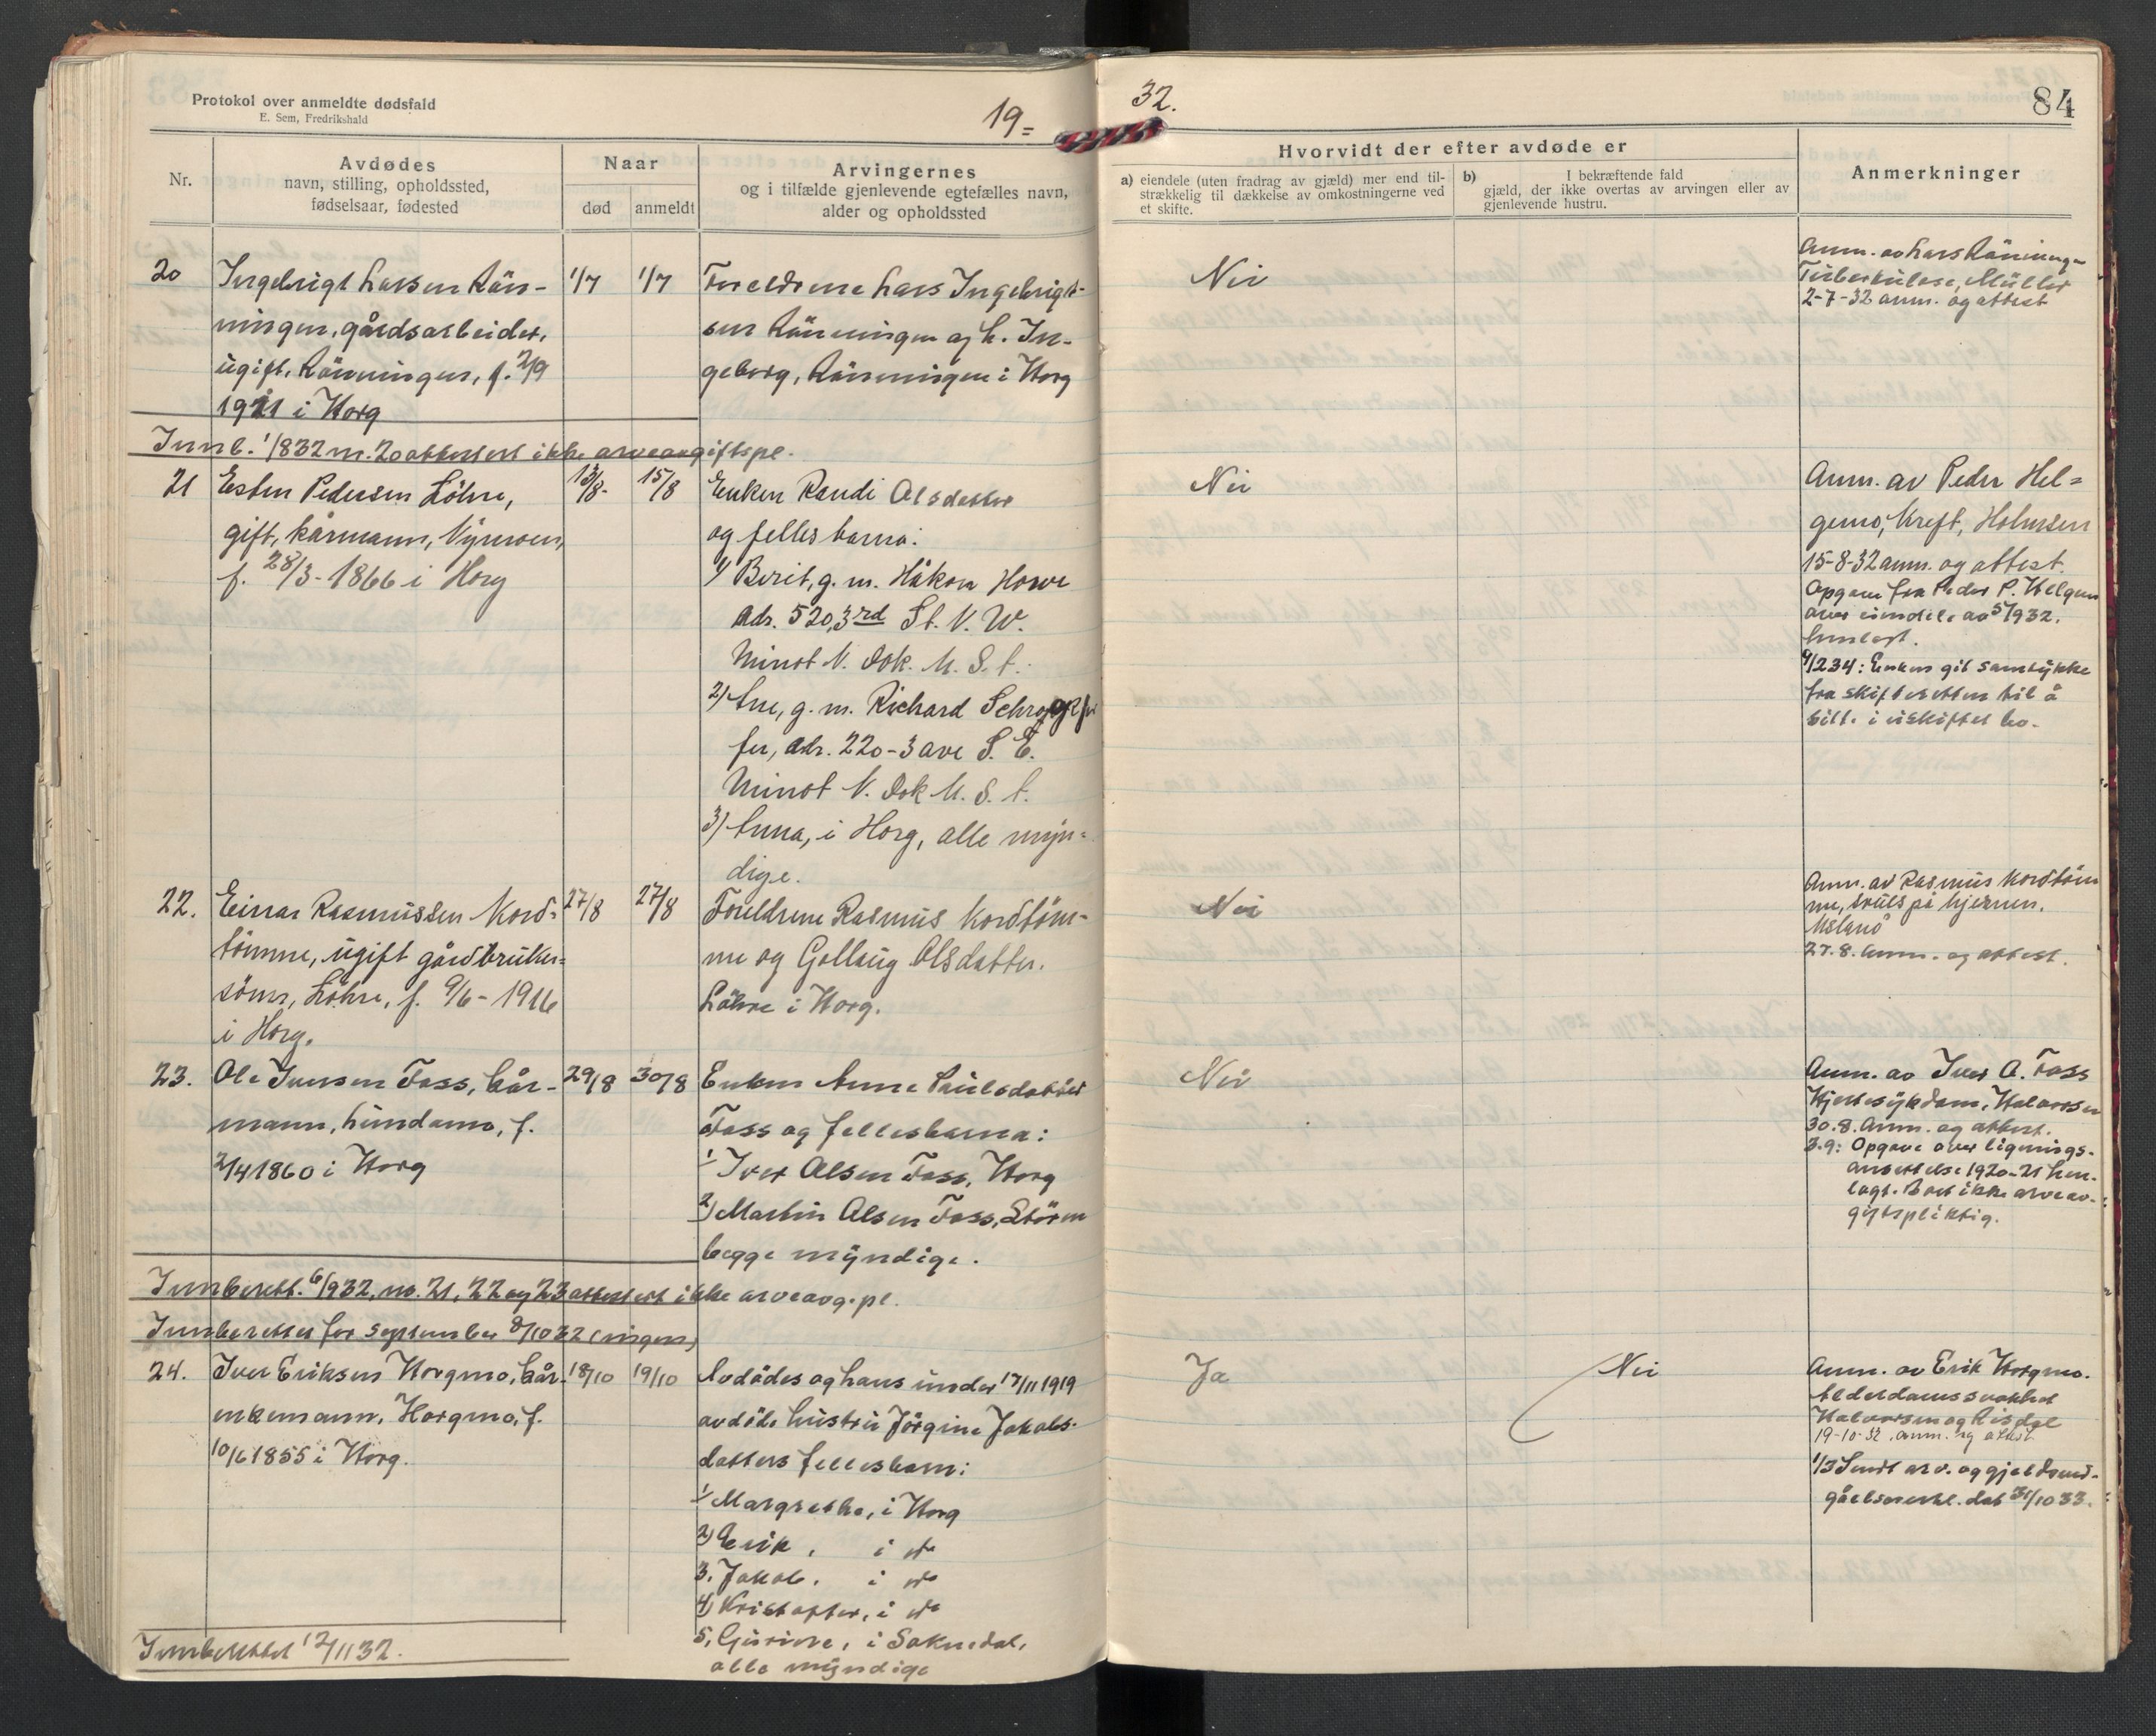 Protokol over anmeldte dødsfald
E. Sem, Fredrikshald
19=
32.
84
Nr.
Avdødes
navn, stilling, opholdssted,
fødselsaar, fødested
Naar
død
anmeldt
Arvingernes
og i tilfælde gjenlevende egtefælles navn,
alder og opholdssted
Hvorvidt der efter avdøde er
a) eiendele (uten fradrag av gjæld) mer end til-
strækkelig til dækkelse av omkostningerne ved
et skifte.
b) I bekræftende fald
gjæld, der ikke overtas av arvingen eller av
gjenlevende hustru.
Anmerkninger
20
Ingebrigt Larsen Rön-
ningen, gårdsarbeider,
ugift, Rönningen, f. 2/9
1911 i Horg
1/7
1/7
Foreldrene Lars Ingebrigt-
sen Rönningen og h. In-
geborg, Rönningen i Horg
Nei
Anm. av Lars Rönningen
Tuberkulose, Müller
2-7-32 anm. og attest
Innb. 1/8 32 nr. 20 attestert ikke arveavgiftspl.
21
Esten Pedersen Löhre,
gift, kårmann, Nymoen,
f. 28/3-1866 i Horg
13/8-
15/8
Enken Randi Olsdatter
og felles barna:
1/ Berit, g. m. Håkon Howe
adr. 520, 3rd St. N. W.
Minot N. Dok. U. S. A.
2) Ane, g. m. Richard
fer, adr. 220-3 ave S. E.
Minot N. Dok U. S. A.
3) Anna, i Horg, alle myn=
dige.
Nei
Anm. av Peder Hel=
gemo, Kreft, Holmsen
15-8-32 anm. og attest.
Opgave fra Peder P. Helgemo
over eiendele av 5/9 32.
henlagt.
4/2 34: Enken git samtykke
fra skifteretten til å
sitte i uskiftet bo.
22.
Einar Rasmussen Kord=
tömme, ugift gårdbruker=
sönn, Löhre, f. 9/6-1916
i Horg.
27/8
27/8
Foreldrene Rasmus Kordtöm-
me og Gollaug Olsdatter.
Löhre i Horg.
Nei
Anm. av Rasmus Kordtöm
me, svuls på hjernen.
27.8. Anm. og attest.
23.
Ole Iversen Foss, kår-
mann, Lundamo, f.
2/4 1860 i Horg
29/8
30/8
Enken Anne Paulsdatter
Foss og fellesbarna:
1/ Iver Olsen Foss, Horg
2) Martin Olsen Foss, Stören
begge myndige.
Nei
Anm. av Iver O. Foss
Hjertesykdom, Halvorsen
30.8. Anm. og attest.
3.9: Opgave over lignings-
ansettelse 1920-21 hen-
lagt. Boet ikke arveav-
giftspliktig.
Innberett. 6/9 32, nr. 21, 22 og 23 attestert ikke arveavg.pl.
Innberettet for september 8/10 32 (ingen)
24.
Iver Eriksen Horgmo, kår-
enkemann, Horgmo, f.
10/6 1855 i Horg.
18/10
19/10
Avdödes og hans under 17/11 1919
avdöde hustru Jörgine Jakobs-
datters fellesbarn:
1/ Margrethe, i Horg
2) Erik, i do
3. Jakob, i do
4) Kristoffer, i do
5, Gurine, i Soknedal,
alle myndige
Ja
Nei
Anm. av Erik Horgmo.
Alderdomssvakhet
Halvorsen og Risdal
19-10-32. anm. og attest
1/3 Sendt arv. og gjeldsved-
gåelseserkl. dat 31/10 33.
Innberettet 12/11 32.